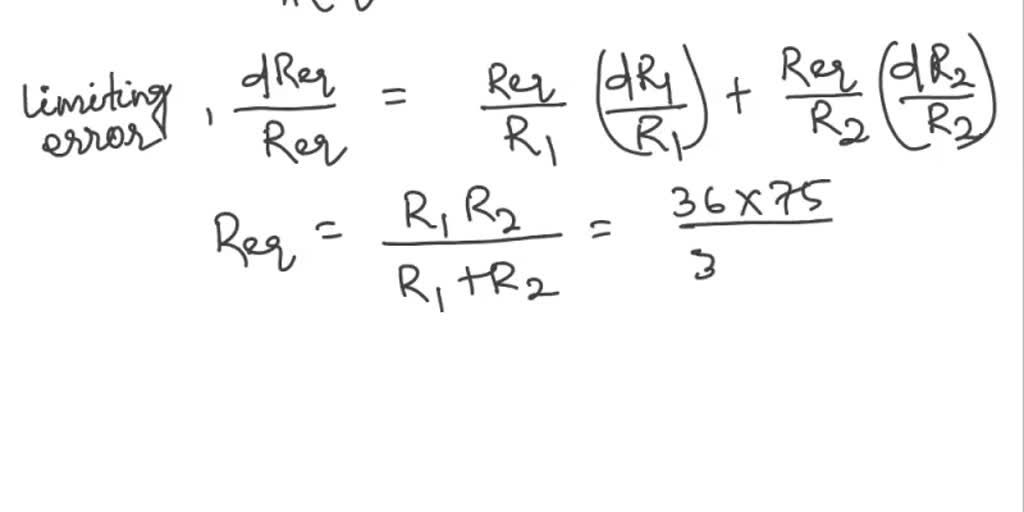 limiting error, dReq/Req = Req/R₁ (dR₁/R₁) + Req/R₂ (dR₂/R₂)
Req = R₁R₂/R₁+R₂ = 36×75/3